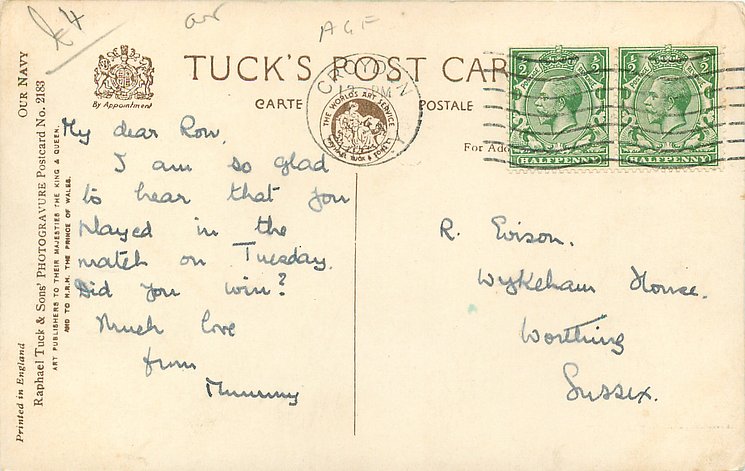 £4
AGF
TUCK'S POST CAR
CARTE POSTALE
By Appointment
CROYDON
THE WORLD'S ART SERVICE
RAPHAEL TUCK & SONS LTD
For Add
HALFPENNY
HALFPENNY
OUR NAVY
Raphael Tuck & Sons' PHOTOGRAVURE Postcard No. 2183
ART PUBLISHERS TO THEIR MAJESTIES THE KING & QUEEN,
AND TO H.R.H. THE PRINCE OF WALES.
Printed in England
My dear Ron,
I am so glad
to hear that you
played in the
match on Tuesday.
Did you win?
Much love
from
Mummy
R. Evison.
Wykeham House.
Worthing
Sussex.